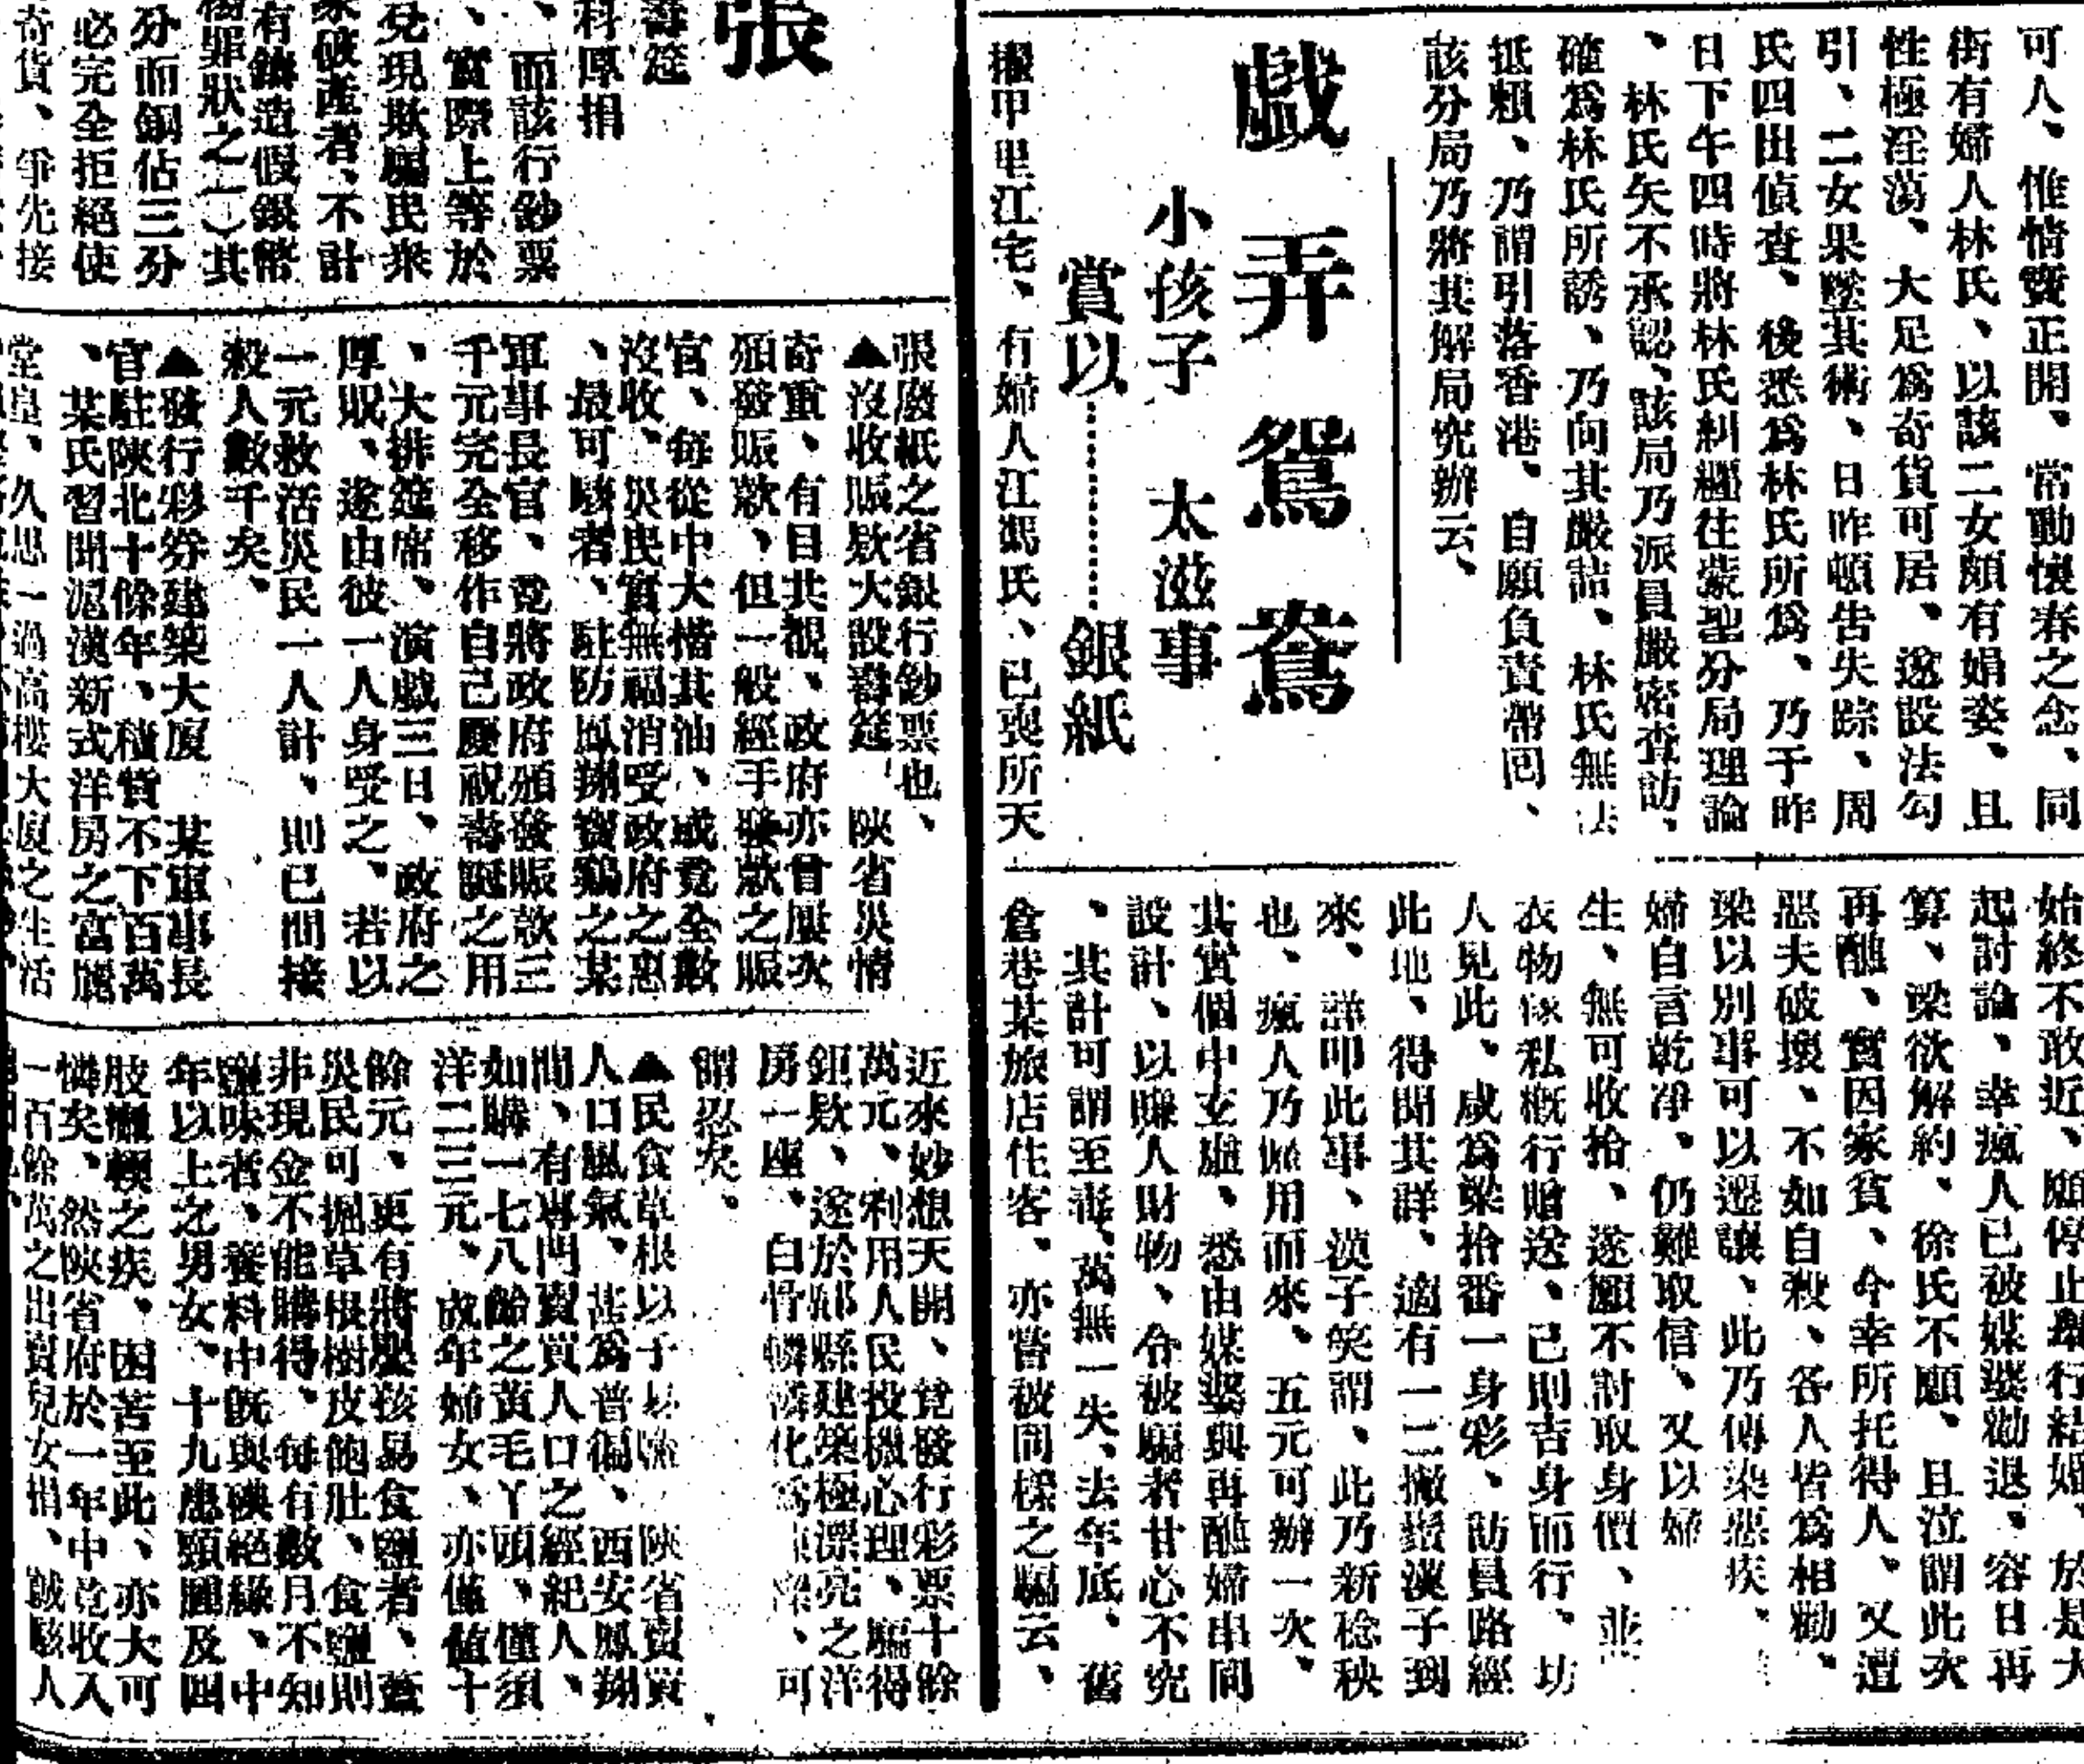 可人、惟情竇正開、常動懷春之念、同
街有婦人林氏、以該二女頗有娟姿、且
性極淫蕩、大足爲奇貨可居、遂設法勾
引、二女果墜其術、日昨頓告失踪、周
氏四出偵查、後悉爲林氏所爲、乃于昨
日下午四時將林氏糾纒往蒙聖分局理論
、林氏矢不承認、該局乃派員嚴密查訪、
確爲林氏所誘、乃向其嚴詰、林氏無法
抵賴、乃謂引落香港、自願負責帶回、
該分局乃將其解局究辦云、
戲弄鴛鴦
小孩子 太滋事
賞以………銀紙
擢甲里江宅、有婦人江馮氏、已喪所天
始終不敢近、願停止舉行結婚、於是大
起討論、幸瘋人已被媒婆勸退、容日再
算、梁欲解約、徐氏不願、且泣謂此次
再醮、實因家貧、今幸所托得人、又遭
惡夫破壞、不如自殺、各人皆爲相勸、
梁以別事可以遷讓、此乃傳染惡疾、
婦自言乾净、仍難取信、又以婦
生、無可收拾、遂願不討取身價、並
衣物傢私概行贈送、己則吉身而行、坊
人見此、咸爲梁拾番一身彩、訪員路經
此地、得聞其群、適有一二撇蜑漢子到
來、詳叩此事、漢子笑謂、此乃新稔秧
也、瘋人乃僱用而來、五元可辦一次、
其實個中玄虛、悉由媒婆與再醮婦串同
設計、以賺人財物、令被騙者甘心不究
、其計可謂至毒、萬無一失、去年底、舊
倉巷某旅店住客、亦嘗被同樣之騙云、
張
壽筵
科厚捐
、而該行鈔票
、實際上等於
兌現欺騙民衆
家破產者、不計
有鑄造假銀幣
罪狀之一）其
分而銅佔三分
必完全拒絕使
奇貨、爭先接
張廢紙之省銀行鈔票也、
▲沒收賑欵大設壽筵 陝省災情
奇重、有目共覩、政府亦曾屢次
頒發賑欵、但一般經手發欵之賑
官、每從中大揩其油、或竟全數
沒收、災民實無福消受政府之惠
、最可駭者、駐防鳳翔寶鷄之某
軍事長官、竟將政府頒發賑欵三
千元完全移作自己慶祝壽誕之用
、大排筵席、演戲三日、政府之
厚賑、遂由彼一人身受之、若以
一元救活災民一人計、則已間接
殺人數千矣、
▲發行彩券建築大廈 某軍事長
官駐陝北十餘年、積貲不下百萬
、某氏習聞滬漢新式洋房之富麗
堂皇、久思一過高樓大廈之生活
近來妙想天開、竟發行彩票十餘
萬元、利用人民投機心理、騙得
鉅欵、遂於郿縣建築極漂亮之洋
房一座、白骨轔轔化爲、可
謂忍矣、
▲民食草根以子易鹽 陝省賣買
人口風氣、甚爲普徧、西安鳳翔
間、有專門賣買人口之經紀人、
如購一七八齡之黃毛丫頭、僅須
洋二三元、成年婦女、亦僅值十
餘元、更有將嬰孩易食鹽者、蓋
災民可掘草根樹皮飽肚、食鹽則
非現金不能購得、每有數月不知
鹽味者、養料中既與碘絕緣、中
年以上之男女、十九患頸腫及四
肢癱輭之疾、困苦至此、亦大可
憐矣、然陝省府於一年中竟收入
一百餘萬之出賣兒女捐、誠駭人